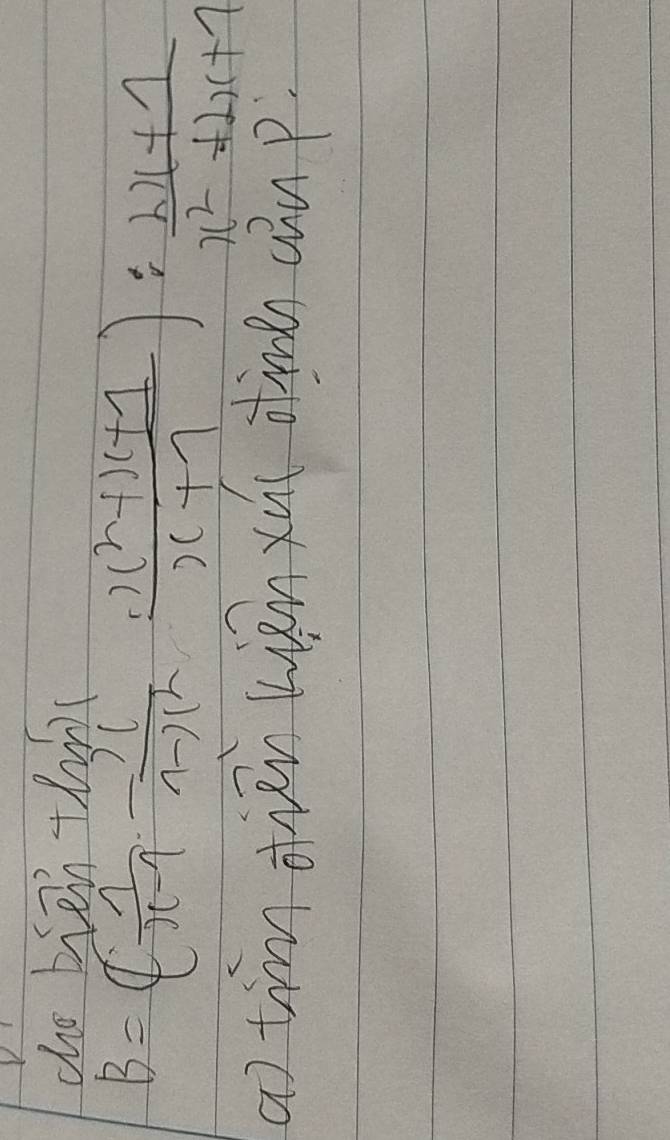 cho biến thức
B = (1/(x-1) - x/(1-x²) · (x²+x+1)/(x+1)) : (2x+1)/(x²+2x+1)
a) tìm điền kiện xác định của P.